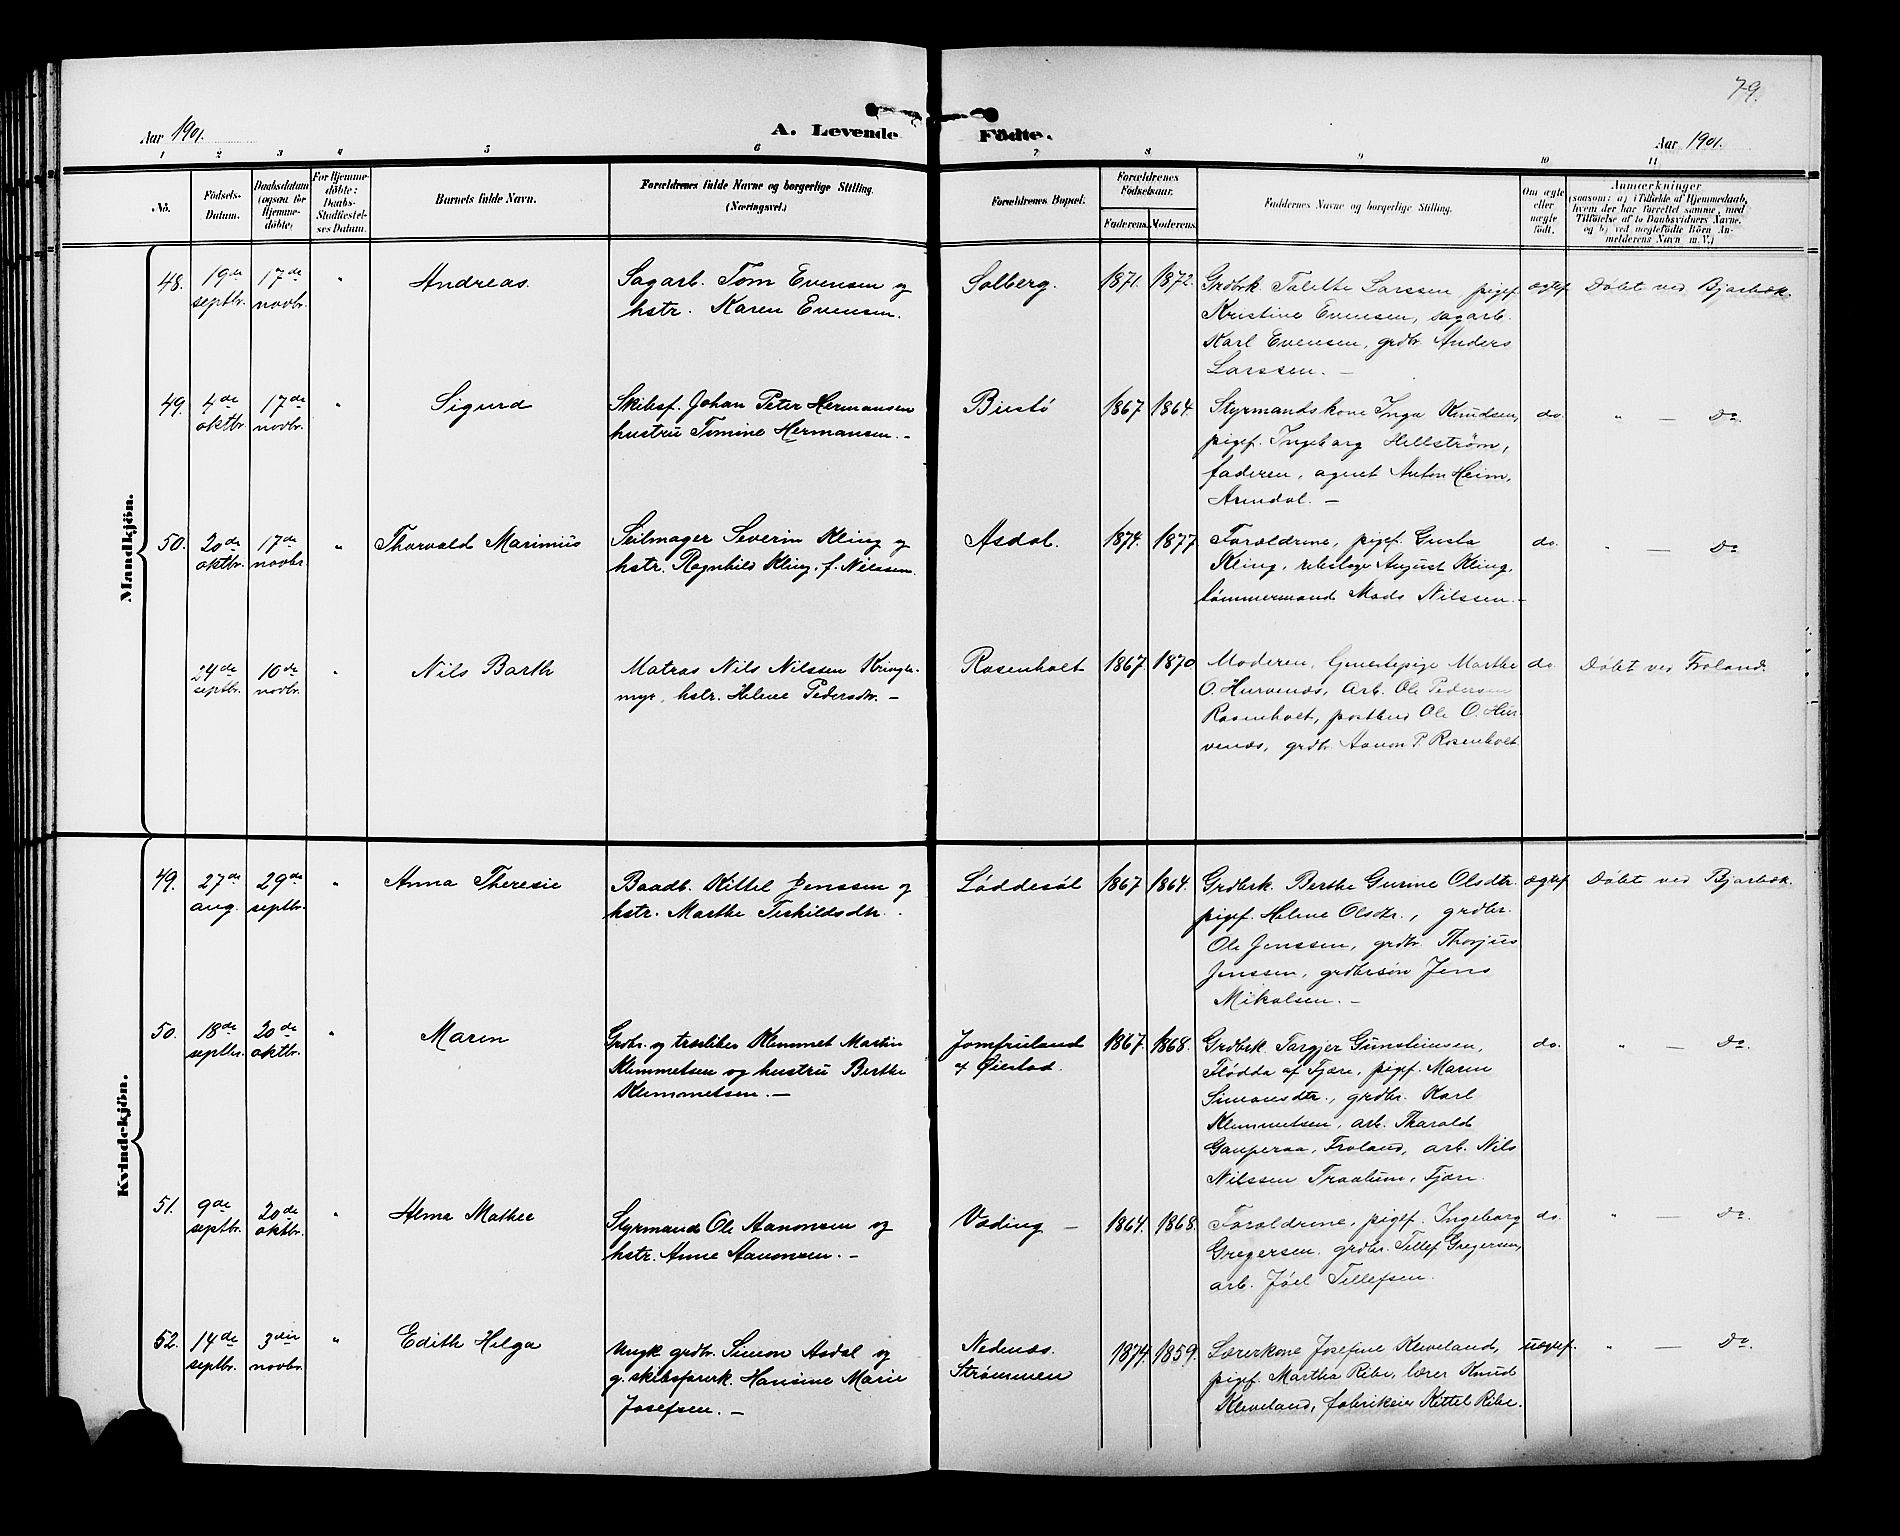 79.
Aar 1901.
A. Levende Födte.
Aar 1901.
1 2 3 4 5 6 7 8 9 10 11
No.
Födsels-Datum.
Daabsdatum (ogsaa for Hjemme-döbte)
For Hjemme-döbte: Daabs-Stadfæstel-ses Datum.
Barnets fulde Navn.
Forældrenes fulde Navne og borgerlige Stilling. (Næringsvei.)
Forældrenes Bopæl.
Forældrenes Födselsaar.
Faderens. Moderens.
Faddernes Navne og borgerlige Stilling.
Om ægte eller uægte födt.
Anmærkninger
(saasom: a) i Tilfælde af Hjemmedaab, hvem der har forrettet samme, med Tilföielse af to Daabsvidners Navne, og b) ved uægtefödte Börn An-melderens Navn m. V.)
Mandkjön.
48. 19de septbr. 17de novbr. " Andreas. Sagarb. Tom Evensen og hstr. Karen Evensen. Solberg. 1871. 1872. Grdbrk. Talette Larssen pigef. ægtef. Döbt ved Bjorbæk.
Kristine Evensen, sagarb.
Karl Evensen, grdbr. Anders
Larssen. —
49. 4de oktbr. 17de novbr. " Sigurd Skibsf. Johan Peter Hermansen hustru Tomine Hermansen. — Biestö 1867. 1864. Styrmandskone Inga Knudsen, do. " — Do.
pigef. Ingeborg Hellström,
faderen, agent Anton Heim,
Arendal. —
50. 20de oktbr. 17de novbr. " Thorvald Marinius Seilmager Severin Kling og hstr. Ragnhild Kling, f. Nilssen. Asdal. 1874. 1877. Forældrene, pigef. Gusta do. " — Do
Kling, rebslager August Kling,
tømmermand Mads Nilssen. —
24de septbr. 10de novbr. " Nils Barth Matros Nils Nilssen Kringle-myr, hstr. Helene Pedersdtr. — Rosenholt 1867. 1870 Moderen, Marthe do. Döbt ved Froland.
O. Hurvenæs, arb. Ole Pedersen
Rosenholt, postbud Ole O. Hur-
venæs, grdbr. Aanon P. Rosenholt
Kvindekjön.
49. 27de aug. 29de septbr. " Anna Theresie Baadb. Kittel Jenssen og hstr. Marthe Teskildsdtr. Løddesöl 1867 1864. Grdbrk. Berthe Gurine Olsdtr. ægtef. Döbt ved Bjorbæk.
pigef. Helene Olsdtr., grdbr.
Ole Jenssen, grdbr. Thorjus
Jenssen, grdbrsön Jens
Mikalsen. —
50. 18de septbr. 20de oktbr. " Maren Grdbr. og træsliber Klemmet Martin Klemmetsen og hustru Berthe Klemmetsen. — Jomfruland af Øiestad. 1867. 1868. Grdbrk. Torgjer Gunsteinsen, do. " — Do.
Flødda af Fjære, pigef. Maren
Simonsdtr., grdbr. Karl
Klemmetsen, arb. Tharald
Gauperaa, Froland, arb. Nils
Nilssen Traalum, Fjære.
51. 9de septbr. 20de oktbr. " Alma Mathea Styrmand Ole Aanonsen og hstr. Anne Aanonsen. — Vøding — 1864. 1868. Forældrene, pigef. Ingeborg do. " — Do.
Gregersen, grdbr. Tellef Gregersen,
arb. Jöel Tellefsen.
52. 14de septbr. 3die novbr. " Edith Helga Ungk. grdbr. Simon Asdal og g. skibsförerk. Hansine Marie Josefsen. — Nedenæs. Strømmen 1874. 1859. Lærerkone Josefine Kleveland, uægtef. " — Do.
pigef. Martha Ribe, lærer Knud
Kleveland, fabrikeier Kittel Ribe.